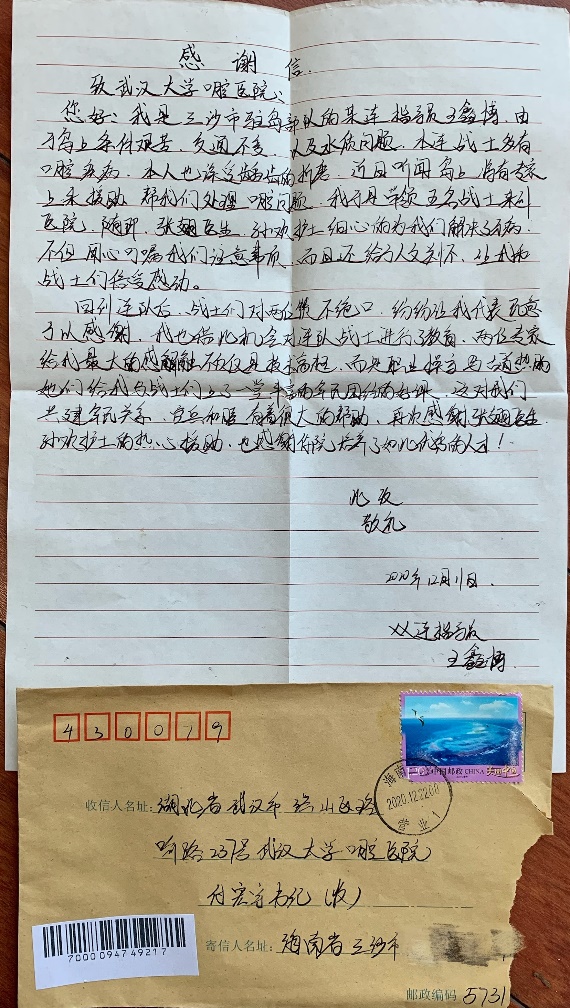 感谢信
致武汉大学口腔医院：
您好：我是三沙市驻岛部队的某连指导员王鑫博，由
于岛上条件艰苦，交通不变，以及水质问题，本连战士多有
口腔疾病，本人也深受龋齿的折磨，近日听闻岛上有专家
上来援助，帮我们处理口腔问题，我于是带领五名战士来到
医院，随即，张翅医生，孙欢护士细心的为我们解决了病
不但用心叮嘱我们注意事项，而且还给予人文关怀，让我和
战士们倍受感动。
回到连队后，战士们对两位赞不绝口，纷纷让我代表
予以感谢，我也借此机会对连队战士进行了教育，两位专家
给我最大的感触不仅是技术高超，而是职业操守
她们给我与战士们上了一堂丰富的军民团结的党课，这对我们
共建军民关系，官兵和医有着很大的帮助，再次感谢张翅医生
孙欢护士的热心援助，也感谢你院培养了如此优秀的人才！
此致
敬礼
2020年12月11日
XX连指导员
王鑫博
430079
中国邮政 CHINA
海南
2020.12.22
营业1
收信人名址：湖北省武汉市洪山区珞
喻路237号武汉大学口腔医院
付 书记（收）
寄信人名址：海南省三沙市
7000094749217
邮政编码 5731